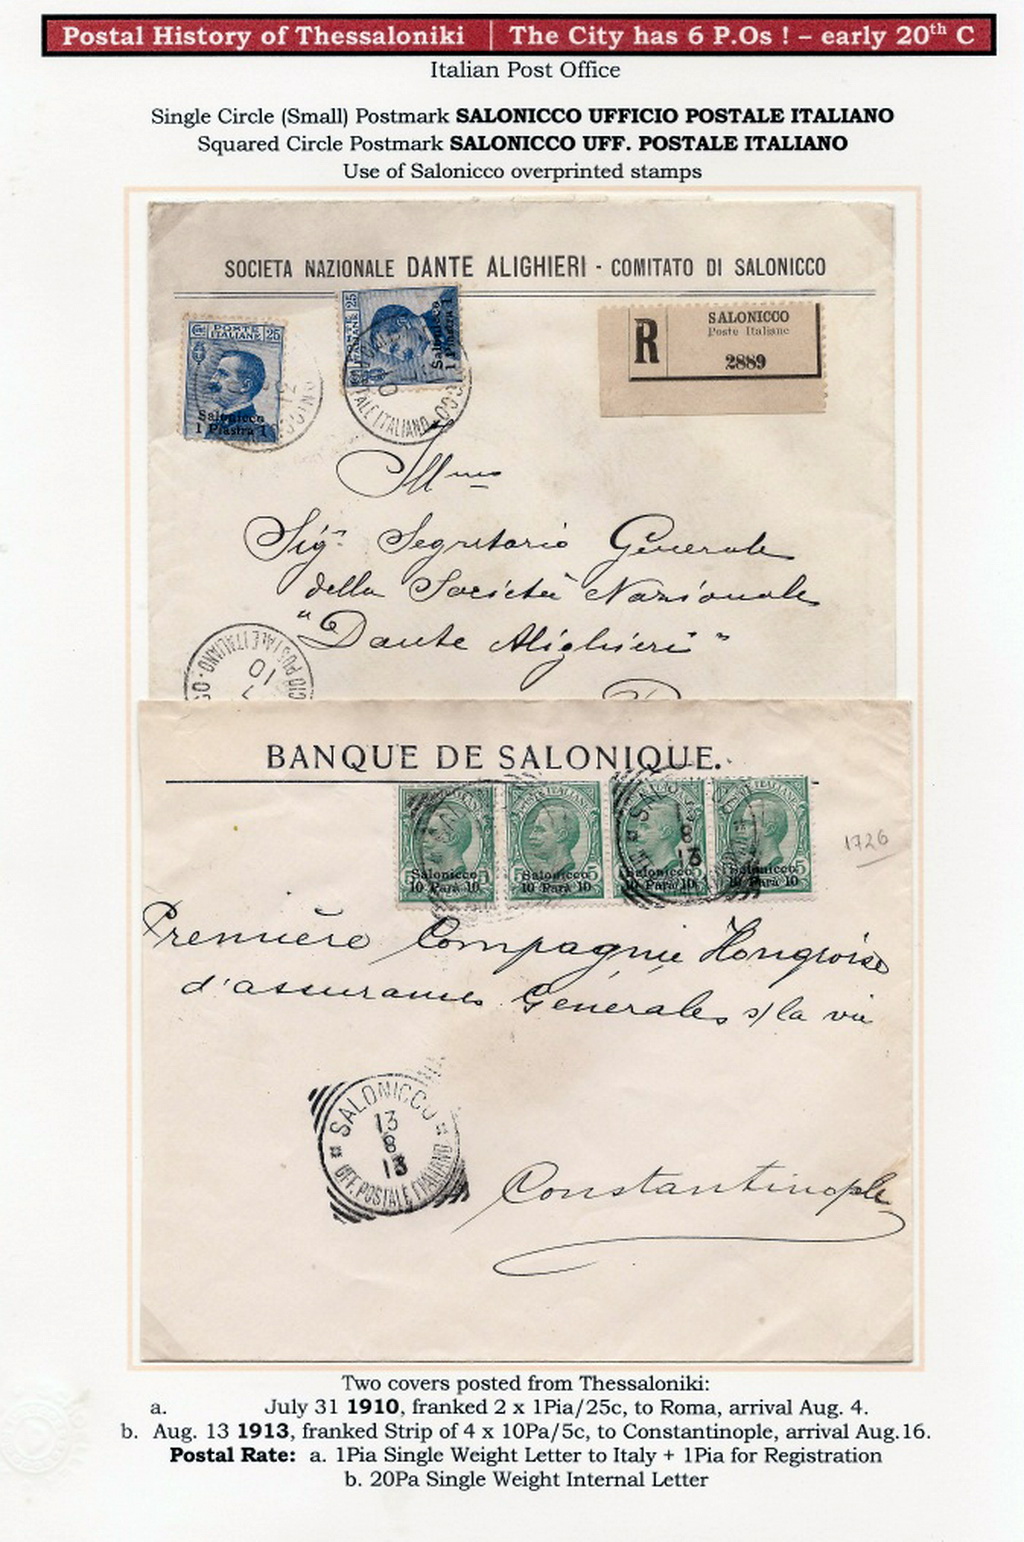 Postal History of Thessaloniki | The City has 6 P.Os ! – early 20th C
Italian Post Office
Single Circle (Small) Postmark SALONICCO UFFICIO POSTALE ITALIANO
Squared Circle Postmark SALONICCO UFF. POSTALE ITALIANO
Use of Salonicco overprinted stamps
SOCIETA NAZIONALE DANTE ALIGHIERI - COMITATO DI SALONICCO
25 POSTE ITALIANE
Salonicco
1 Piastra 1
POSTE ITALIANE 25
Salonicco
1 Piastra 1
TALE ITALIANO
R
SALONICCO
Poste Italiane
2889
Illmo
Sigr Segretario Generale
della Società Nazionale
"Dante Alighieri"
CIO POSTALE ITALIANO
10
BANQUE DE SALONIQUE.
POSTE ITALIANE
Salonicco
10 Parà 10
Salonicco
10 Parà 10
Salonicco
10 Parà 10
Salonicco
10 Parà 10
8
13
1726
Première Compagnie Hongroise
d'assurances Générales s/la vie
SALONICCO
13
8
13
UFF. POSTALE ITALIANO
Constantinople
Two covers posted from Thessaloniki:
a. July 31 1910, franked 2 x 1Pia/25c, to Roma, arrival Aug. 4.
b. Aug. 13 1913, franked Strip of 4 x 10Pa/5c, to Constantinople, arrival Aug.16.
Postal Rate: a. 1Pia Single Weight Letter to Italy + 1Pia for Registration
b. 20Pa Single Weight Internal Letter